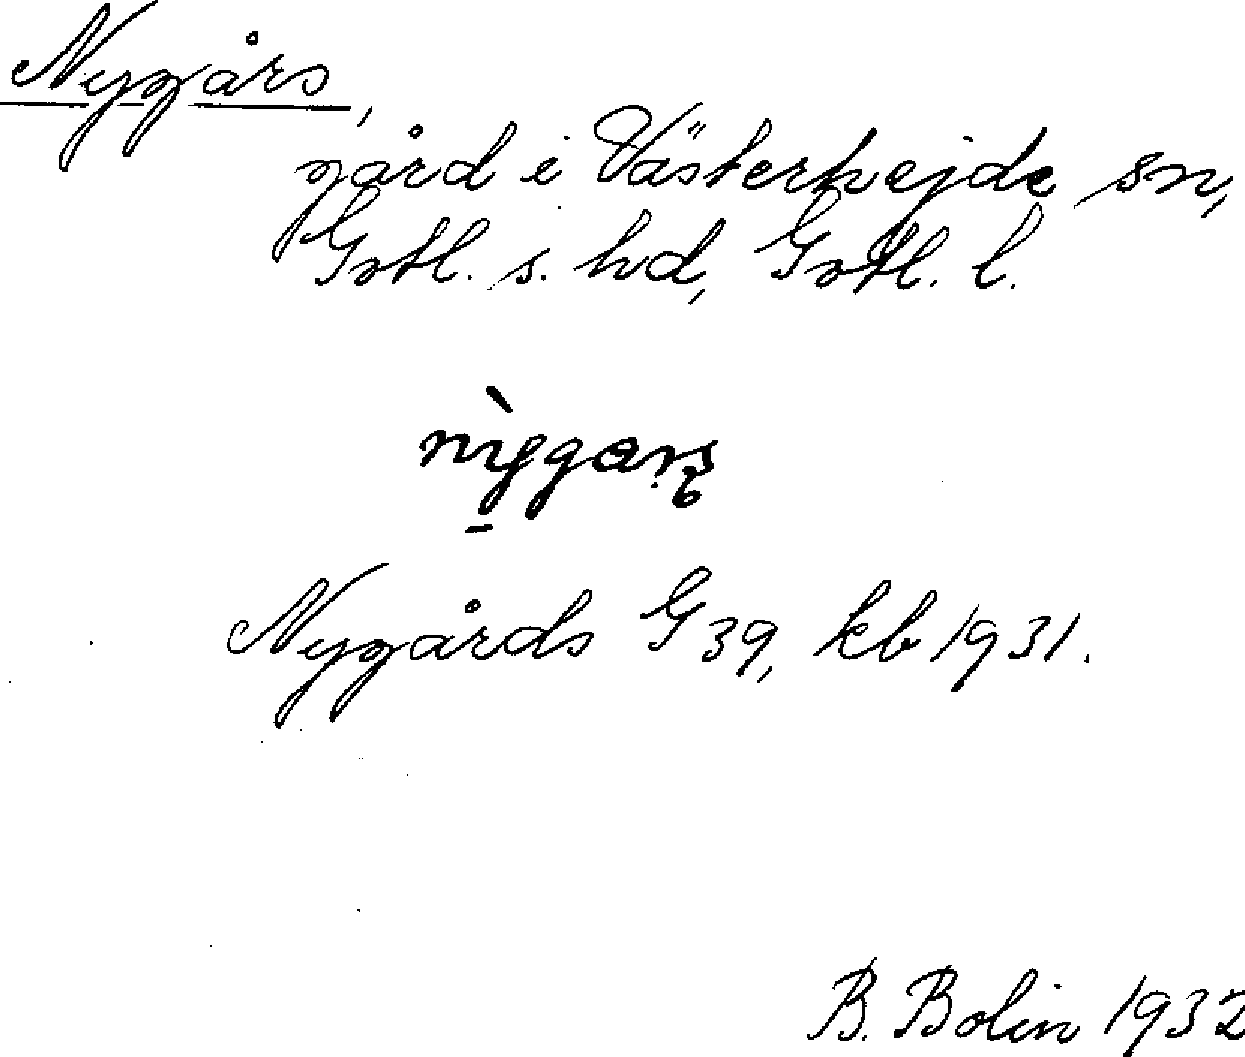 Nygårs,
gård i Västerhejde sn,
Gotl. s. hd, Gotl. l.
Nygårds G 39, kb 1931.
B. Bolin 1932